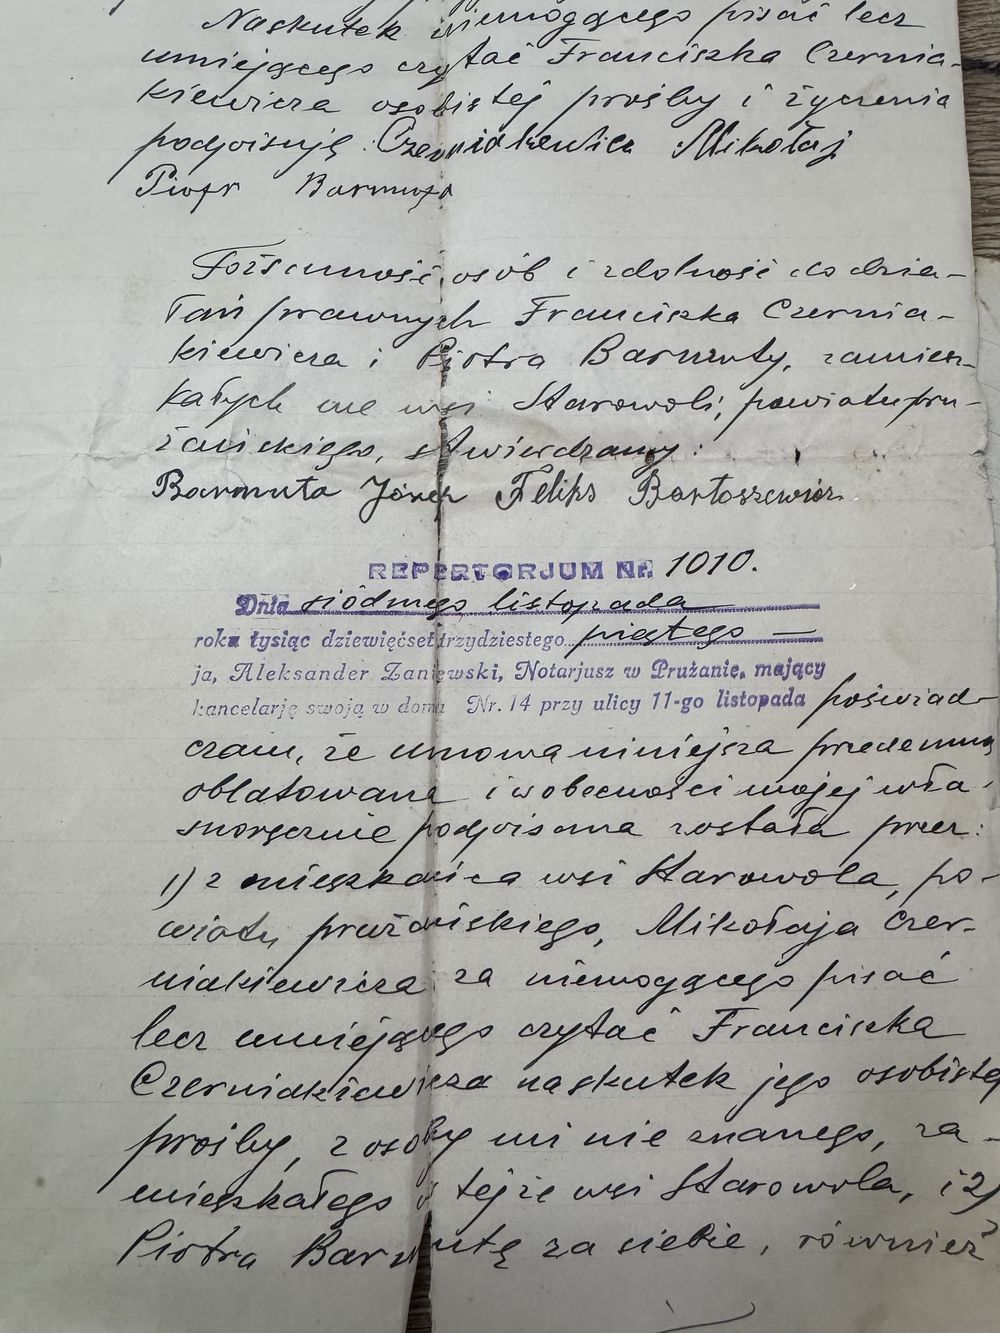 Naskutek niemogącego pisać lecz
umiejącego czytać Franciszka Czernia-
kiewicza osobistej prośby i życzenia
podpisuję: Czerniakiewicz Mikołaj
Piotr Barmuta
Tożsamość osób i zdolność do dzia-
łań prawnych Franciszka Czernia-
kiewicza i Piotra Barmuty, zamiesz-
kałych we wsi Starowoli, powiatu pru-
żańskiego, stwierdzamy:
Barmuta Józef Feliks Bartoszewicz
REPERTORJUM Nr. 1010.
Dnia siódmego listopada
roku tysiąc dziewięćset trzydziestego piątego —
ja, Aleksander Zaniewski, Notarjusz w Prużanie, mający
kancelarję swoją w domu Nr. 14 przy ulicy 11-go listopada poświad-
czam, że umowa niniejsza przedemną
oblatowana i w obecności mojej wła-
snoręcznie podpisana została przez:
1) z mieszkańca wsi Starowola, po-
wiatu prużańskiego, Mikołaja Czer-
niakiewicza za niemogącego pisać
lecz umiejącego czytać Franciszka
Czerniakiewicza naskutek jego osobistej
prośby, z osoby mi nie znanego, za-
mieszkałego w tejże wsi Starowola, i 2)
Piotra Barmutę za siebie, również